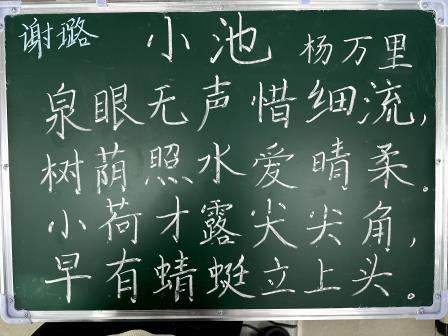 谢璐
小池 杨万里
泉眼无声惜细流,
树荫照水爱晴柔。
小荷才露尖尖角,
早有蜻蜓立上头。